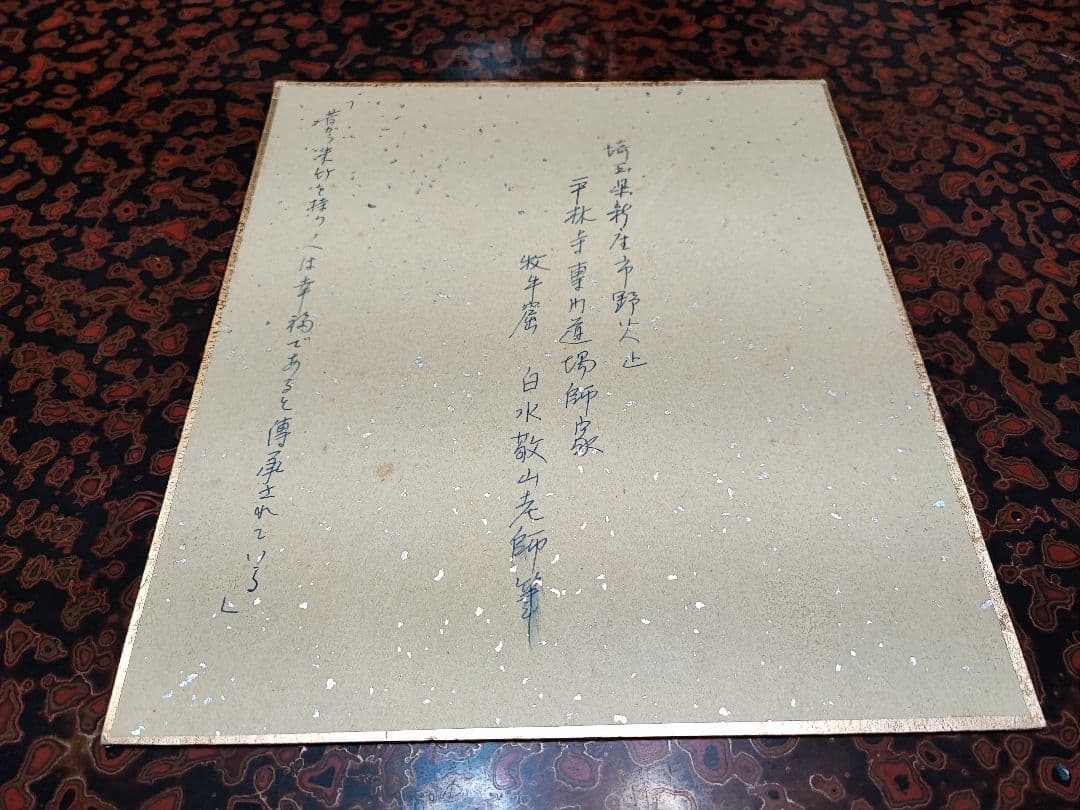 埼玉県新座市野火止
平林寺専門道場師家
牧牛窟 白水敬山老師筆
「昔から朱竹を持つ人は幸福であると傳承されている」